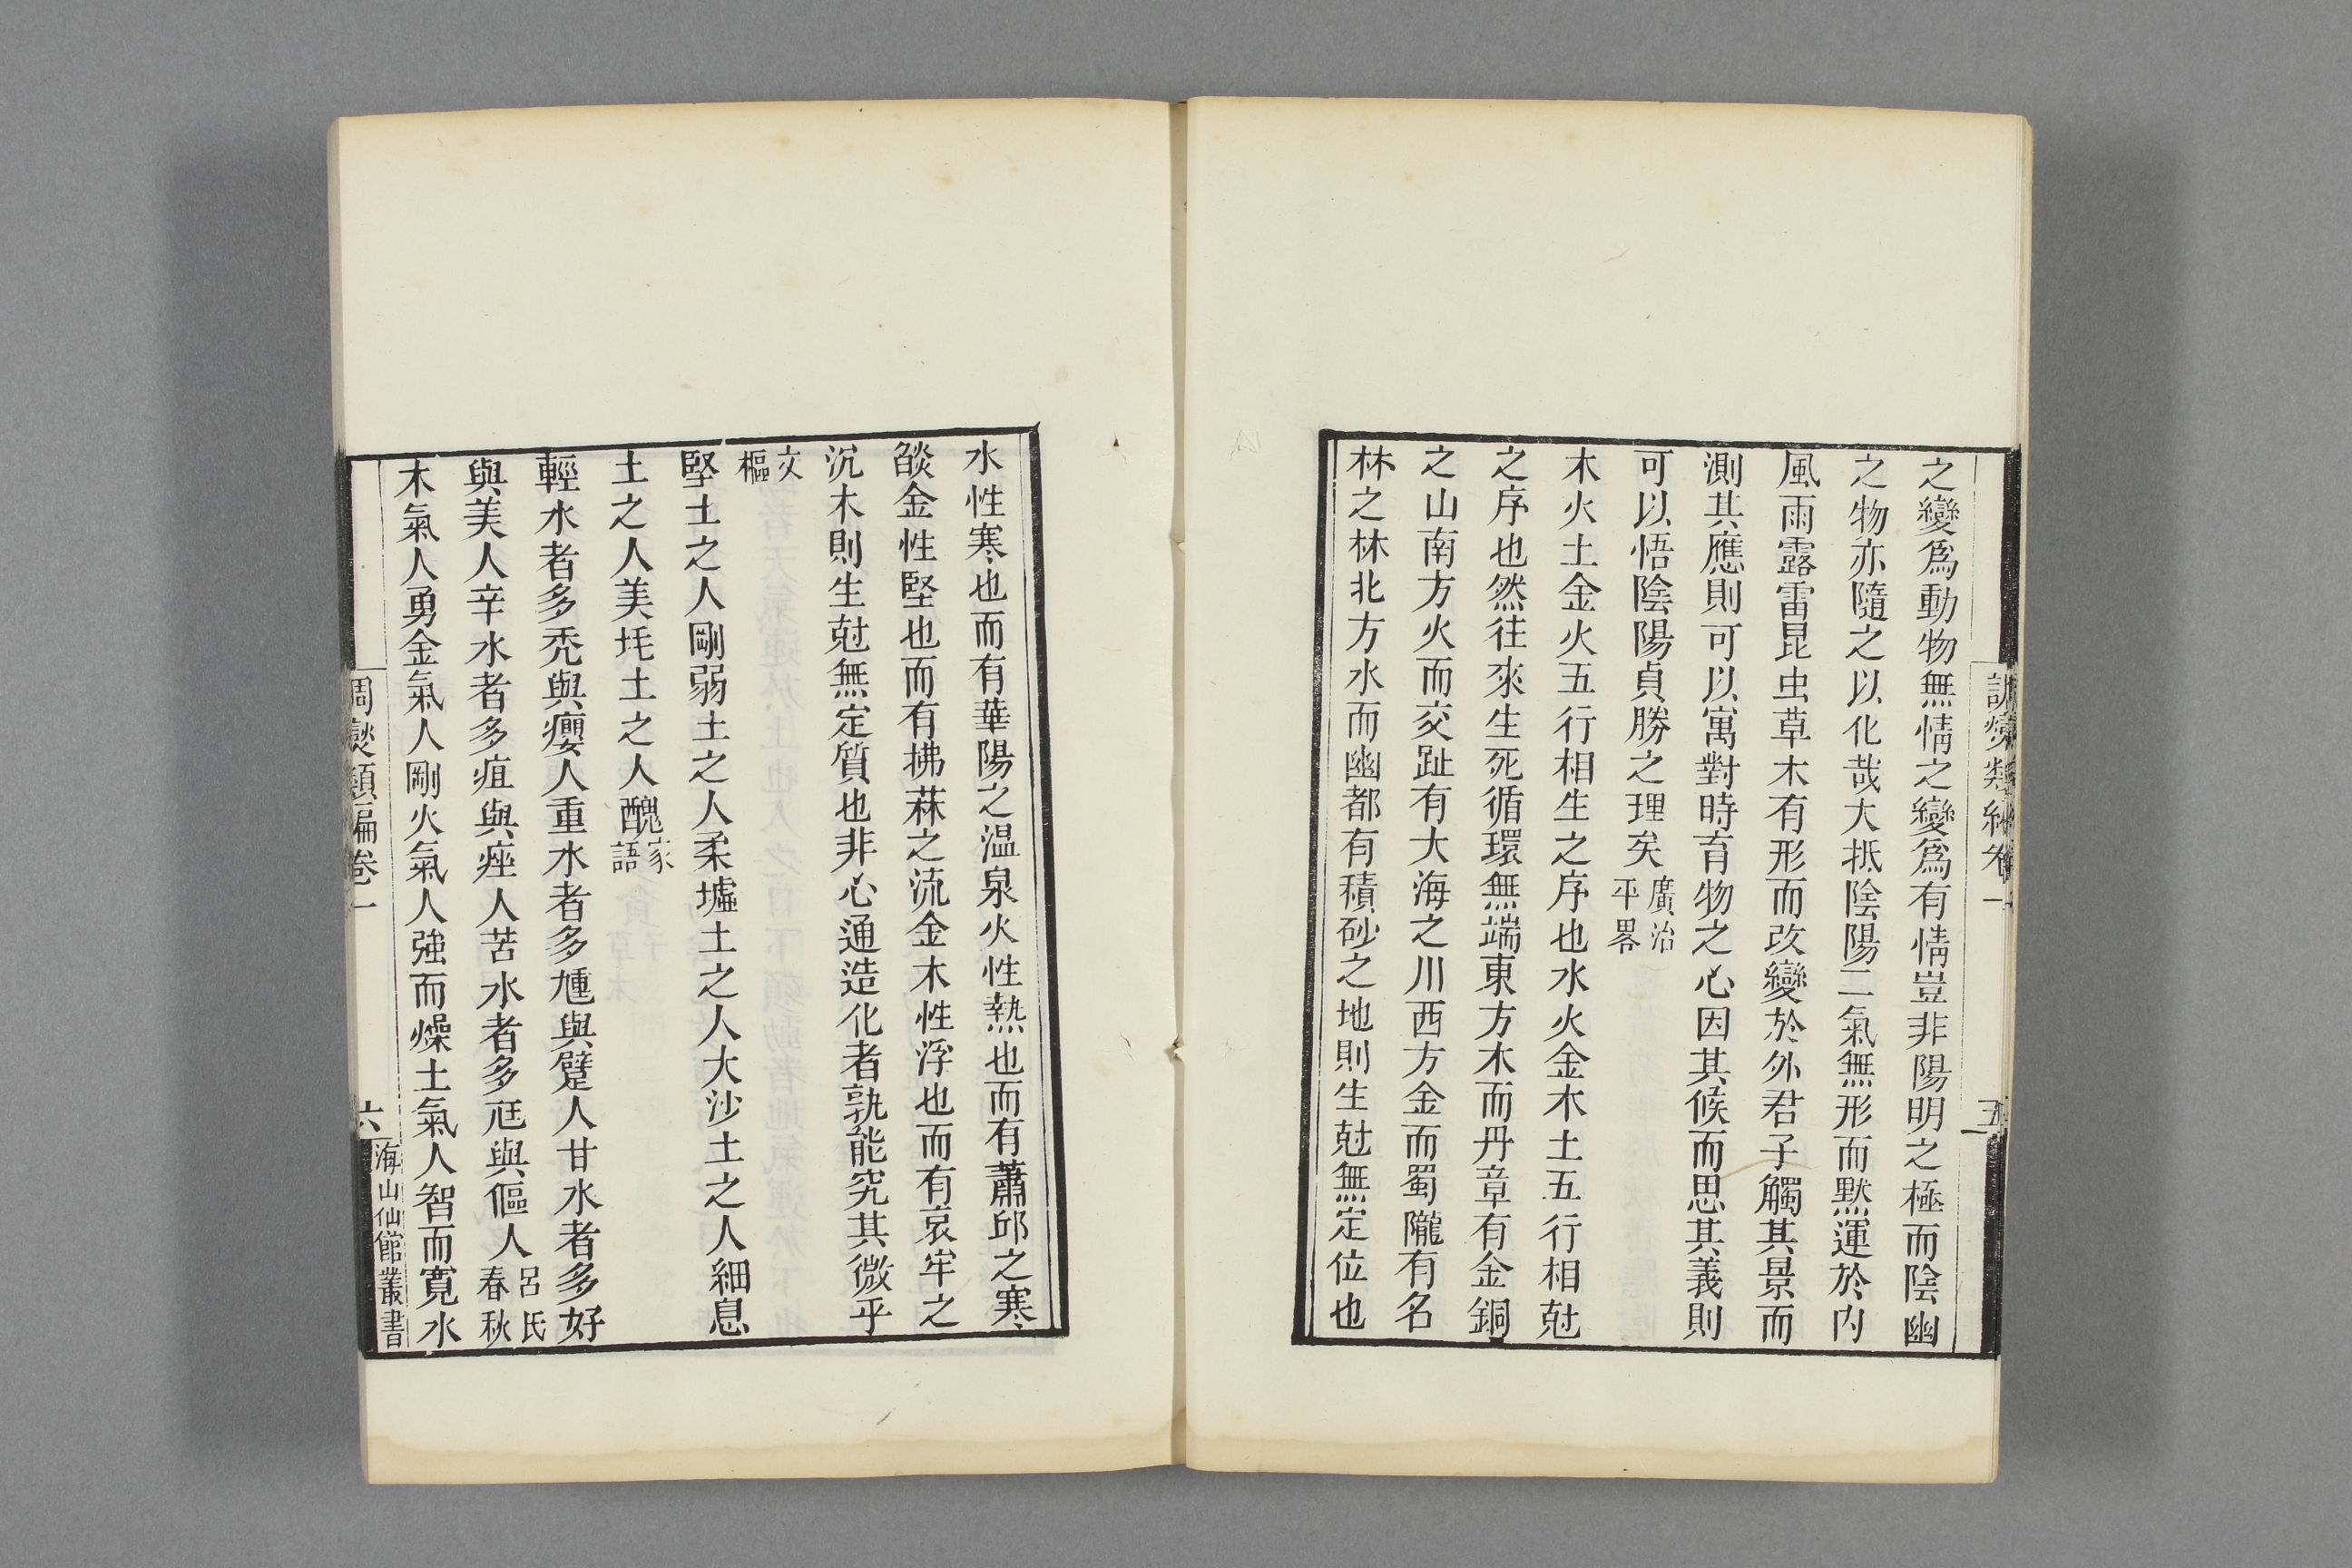 之變爲動物無情之變爲有情豈非陽明之極而陰幽
之物亦隨之以化哉大抵陰陽二氣無形而默運於內
風雨露雷昆虫草木有形而改變於外君子觸其景而
測其應則可以寓對時育物之心因其候而思其義則
可以悟陰陽貞勝之理矣廣治平畧
木火土金火五行相生之序也水火金木土五行相尅
之序也然往來生死循環無端東方木而丹章有金銅
之山南方火而交趾有大海之川西方金而蜀隴有名
林之林北方水而幽都有積砂之地則生尅無定位也
五
水性寒也而有華陽之溫泉火性熱也而有蕭邱之寒
燄金性堅也而有拂菻之流金木性浮也而有哀牢之
沉木則生尅無定質也非心通造化者孰能究其微乎
文樞
堅土之人剛弱土之人柔墟土之人大沙土之人細息
土之人美坘土之人醜家語
輕水者多禿與癭人重水者多尰與躄人甘水者多好
與美人辛水者多疽與痤人苦水者多尫與傴人呂氏春秋
木氣人勇金氣人剛火氣人強而燥土氣人智而寬水
調變類編卷一
六
海山仙館叢書